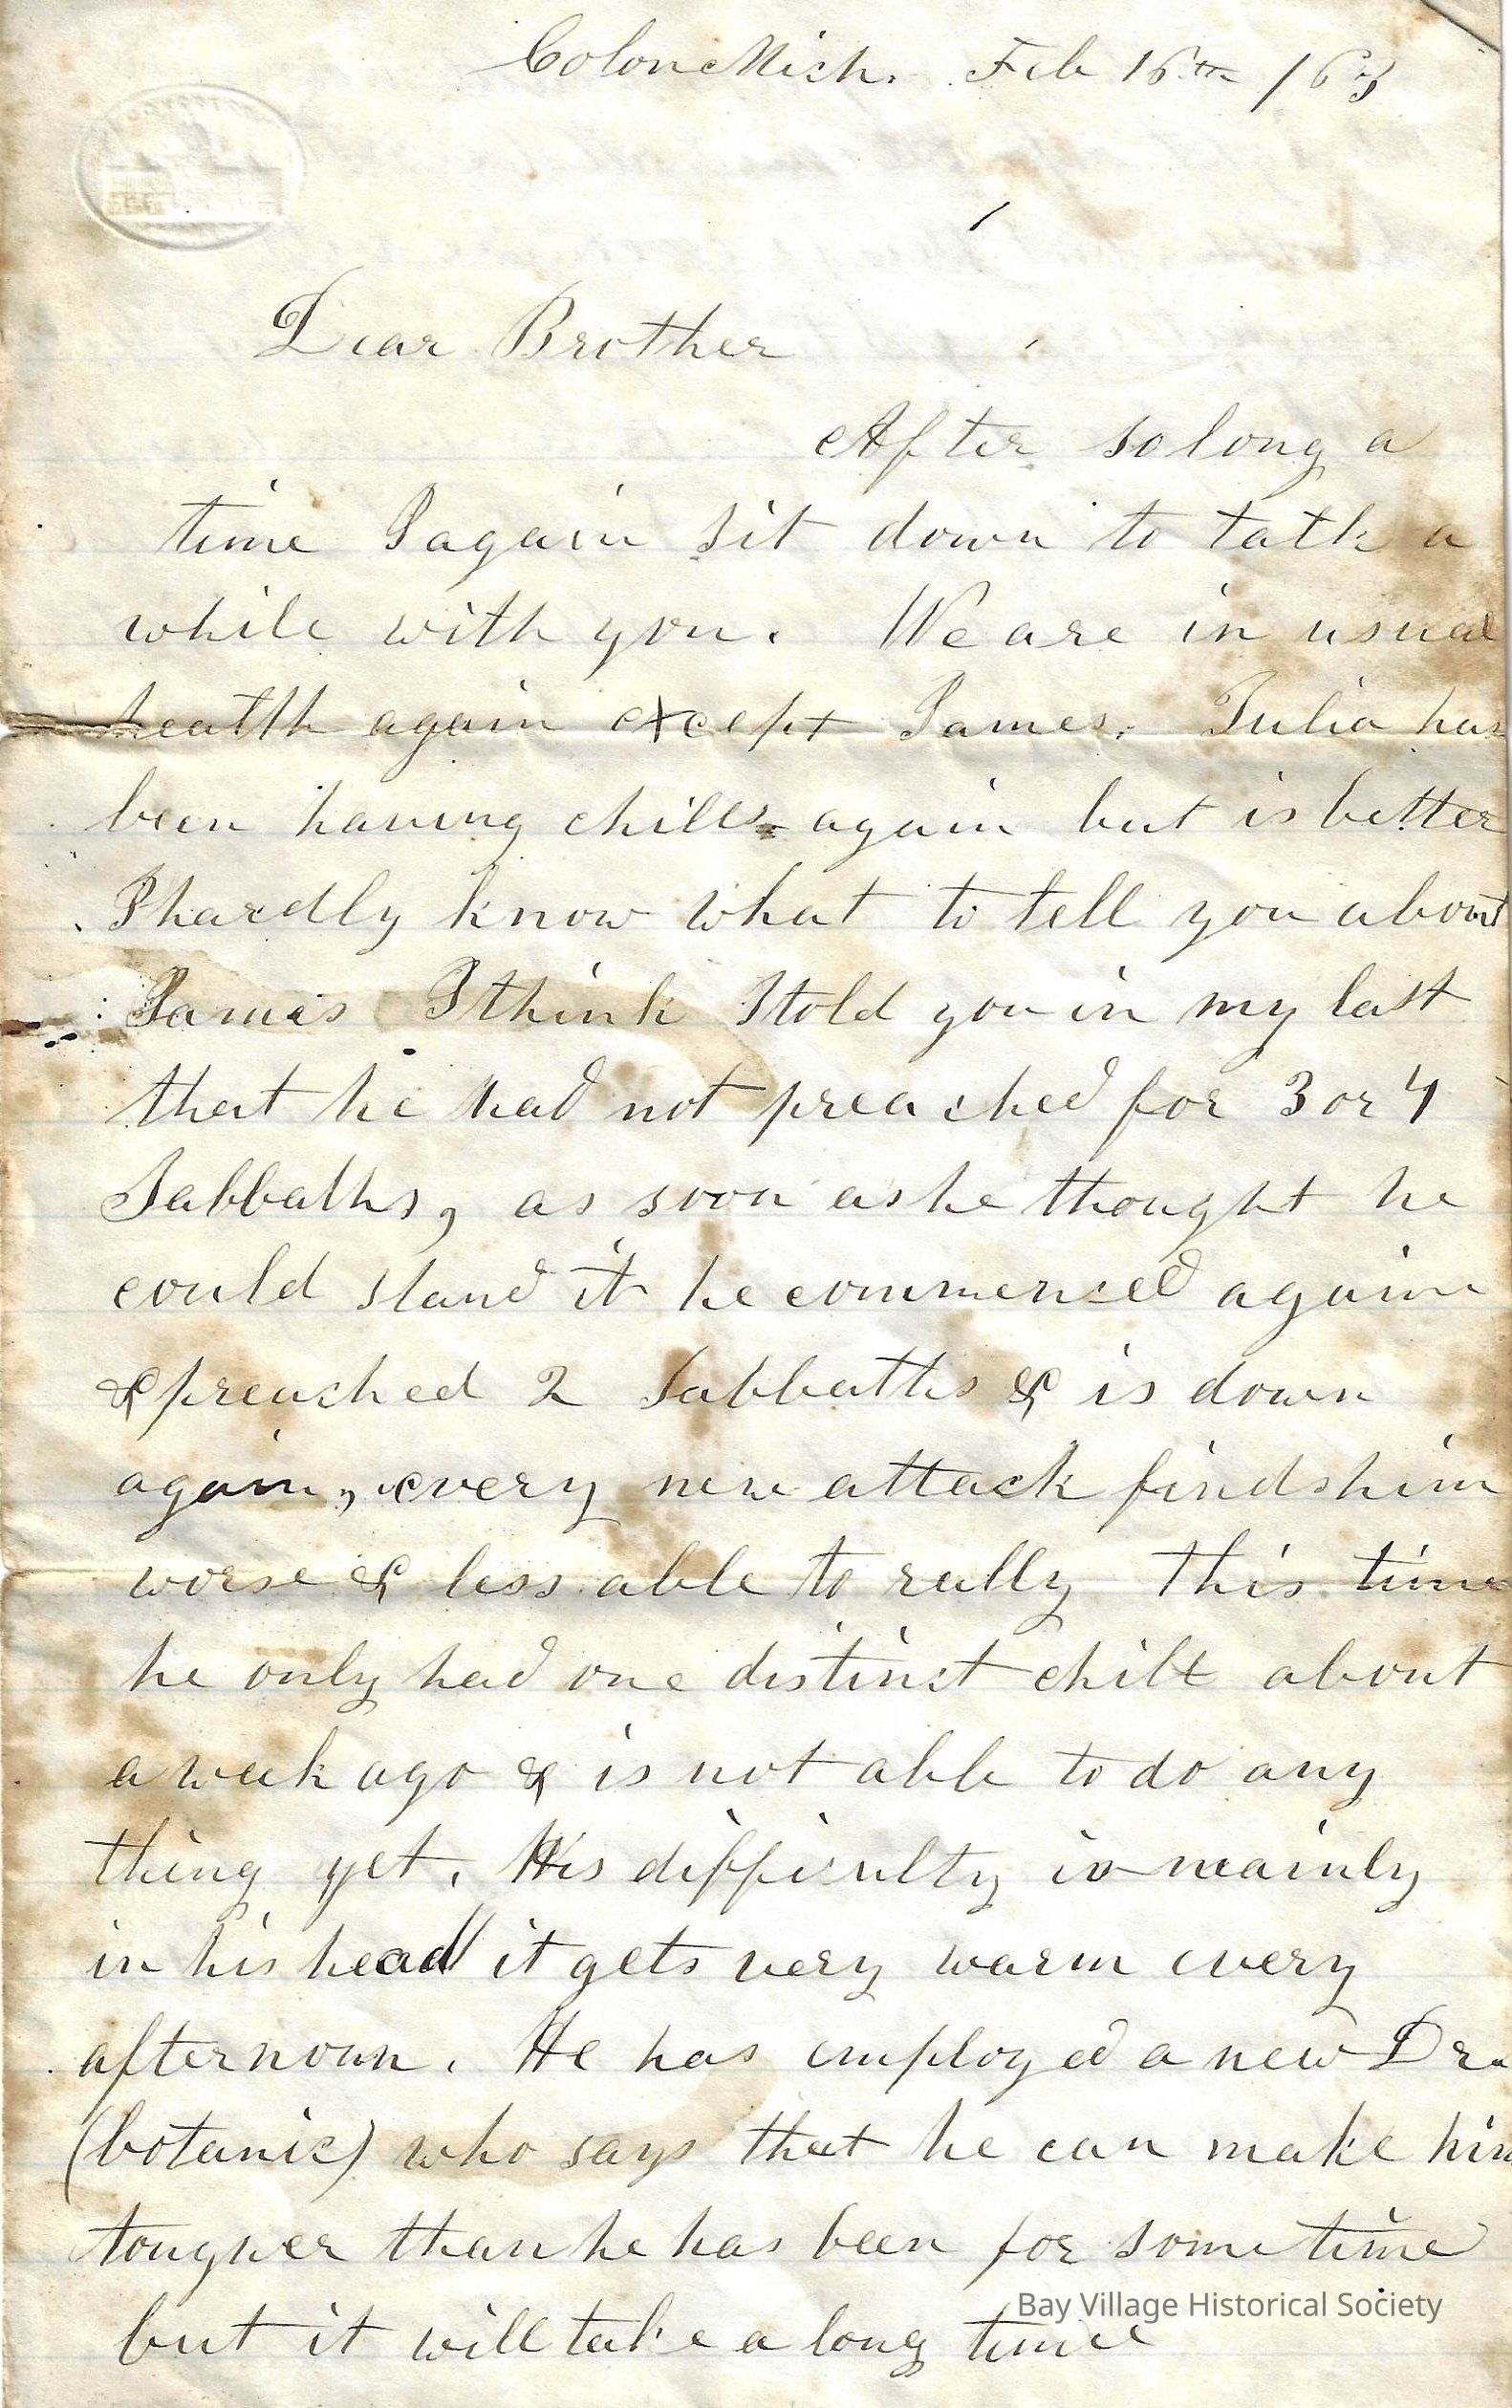 Colon Mich. Feb 16th /63
Dear Brother
After so long a
time I again sit down to talk a
while with you. We are in usual
health again except James. Julia has
been having chills again but is better
I hardly know what to tell you about
James I think I told you in my last
that he had not preached for 3 or 4
Sabbaths, as soon as he thought he
could stand it he commenced again
& preached 2 Sabbaths & is down
again, every new attack finds him
worse & less able to rally this time
he only had one distinct chill about
a week ago & is not able to do any
thing yet. His difficulty is mainly
in his head it gets very warm every
afternoon. He has employed a new Dr.
(botanic) who says that he can make him
tougher than he has been for some time
but it will take a long time
Bay Village Historical Society